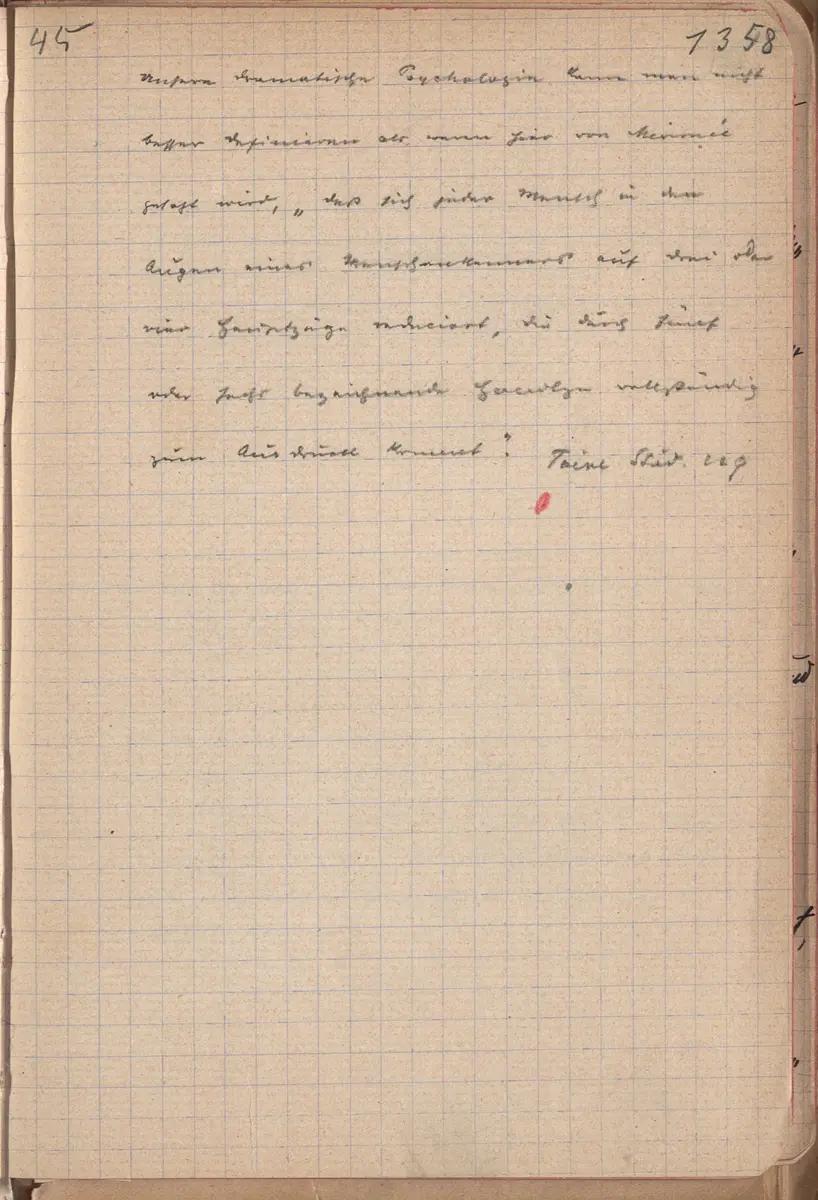 45 1358
Unsere dramatische Psychologie kann man nicht
besser definieren als wenn hier von Merimée
gesagt wird, „daß sich jeder Mensch in den
Augen eines Menschenkenners auf drei oder
vier Hauptzüge reduciert, die durch fünf
oder sechs bezeichnende vollständig
zum Ausdruck kommt“.
Taine Stud.